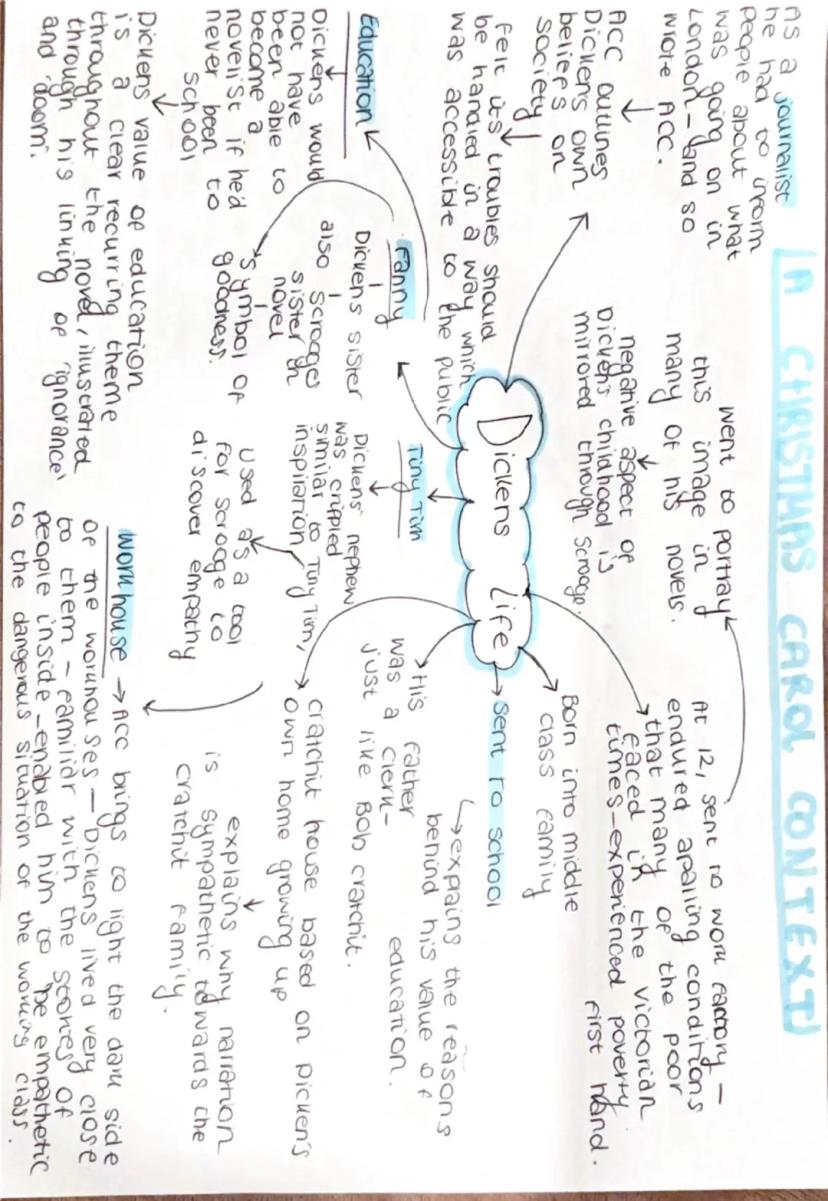 (A CHRISTMAS CAROL CONTEXT)
As a journalist
he had to inform
people about what
was going on in
London - and so
wrote ACC.
ACC outlines
Dickens own
beliefs on
society
felt its troubles should
be handled in a way which
was accessible to the public
went to portray
this image in
many of his novels.
negative aspect of
Dickens childhood is
mirrored through scrooge.
At 12, sent to work factory -
endured apalling conditions
that many of the poor
faced in the victorian
times - experienced poverty
first hand.
Dickens life
Born into middle
class family
sent to school
↳ explains the reasons
behind his value of
education.
His father
was a clerk -
just like Bob cratchit.
cratchit house based on Dicken's
own home growing up
explains why narration
is sympathetic towards the
cratchit family.
Tiny Tim
Dickens' nephew
was crippled
similar to Tiny Tim,
inspiration
used as a tool
for scrooge to
discover empathy
Fanny
Dickens sister
also scrooges
sister in
novel
symbol of
goodness.
Education
Dickens would
not have
been able to
become a
novelist if hed
never been to
school
Dickens value of education
is a clear recurring theme
throughout the novel, illustrated
through his linking of 'ignorance'
and 'doom'.
workhouse → ACC brings to light the dark side
of the workhouses - Dickens lived very close
to them - familiar with the stories of
people inside - enabled him to be empathetic
to the dangerous situation of the working class.